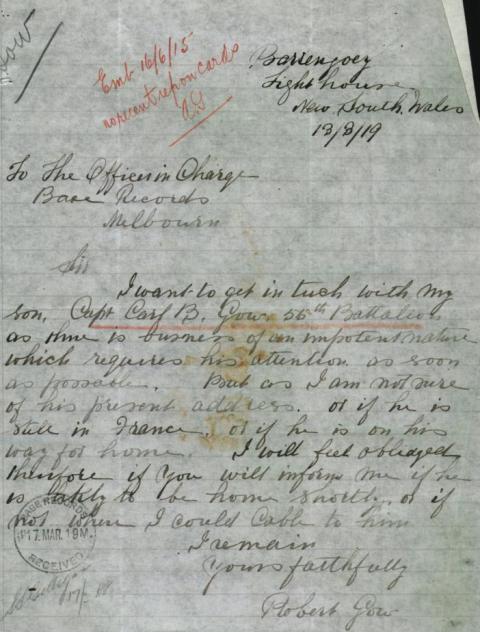 Gow
Emb 16/6/15
no recent rep on cards
Barrenjoey
Light house
New South Wales
13/3/19
To The Officer in Charge
Base Records
Melbourn
Sir
I want to get in tuch with my
son, Capt Carl B. Gow. 55th Battalion
as thre is busness of an impotent nature
which requires his attention as soon
as possable. But as I am not sure
of his present address. or if he is
still in France. or if he is on his
way for home. I will feel obliged
therfore if you will inform me if he
is likely to be home shortly, or if
not where I could Cable to him
I remain
Yours faithfully
Robert Gow
BASE RECORDS
17 MAR. 19
RECEIVED